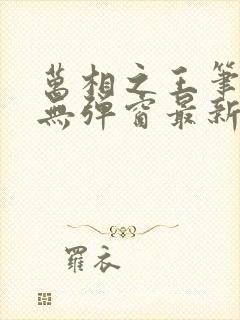 萬相之王筆
無彈窗最新
羅衣